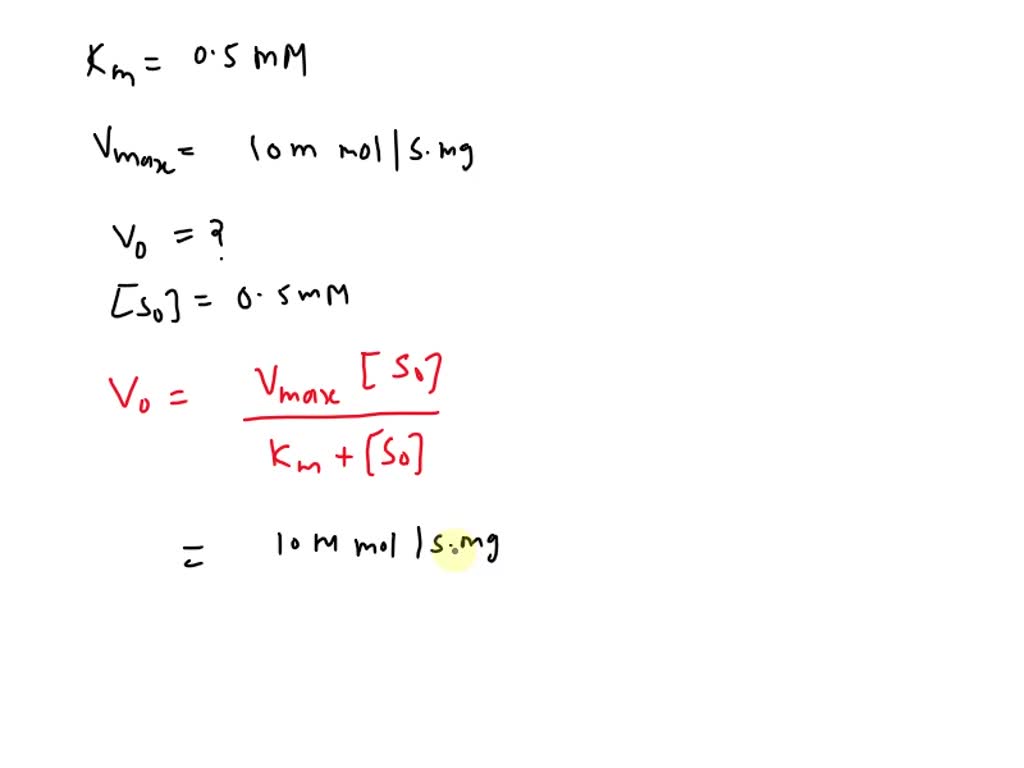 Km = 0.5 mM
Vmax = 10 m mol | s.mg
V0 = ?
[S0] = 0.5 mM
V0 = Vmax [S0]
Km + [S0]
= 10 M mol | s.mg